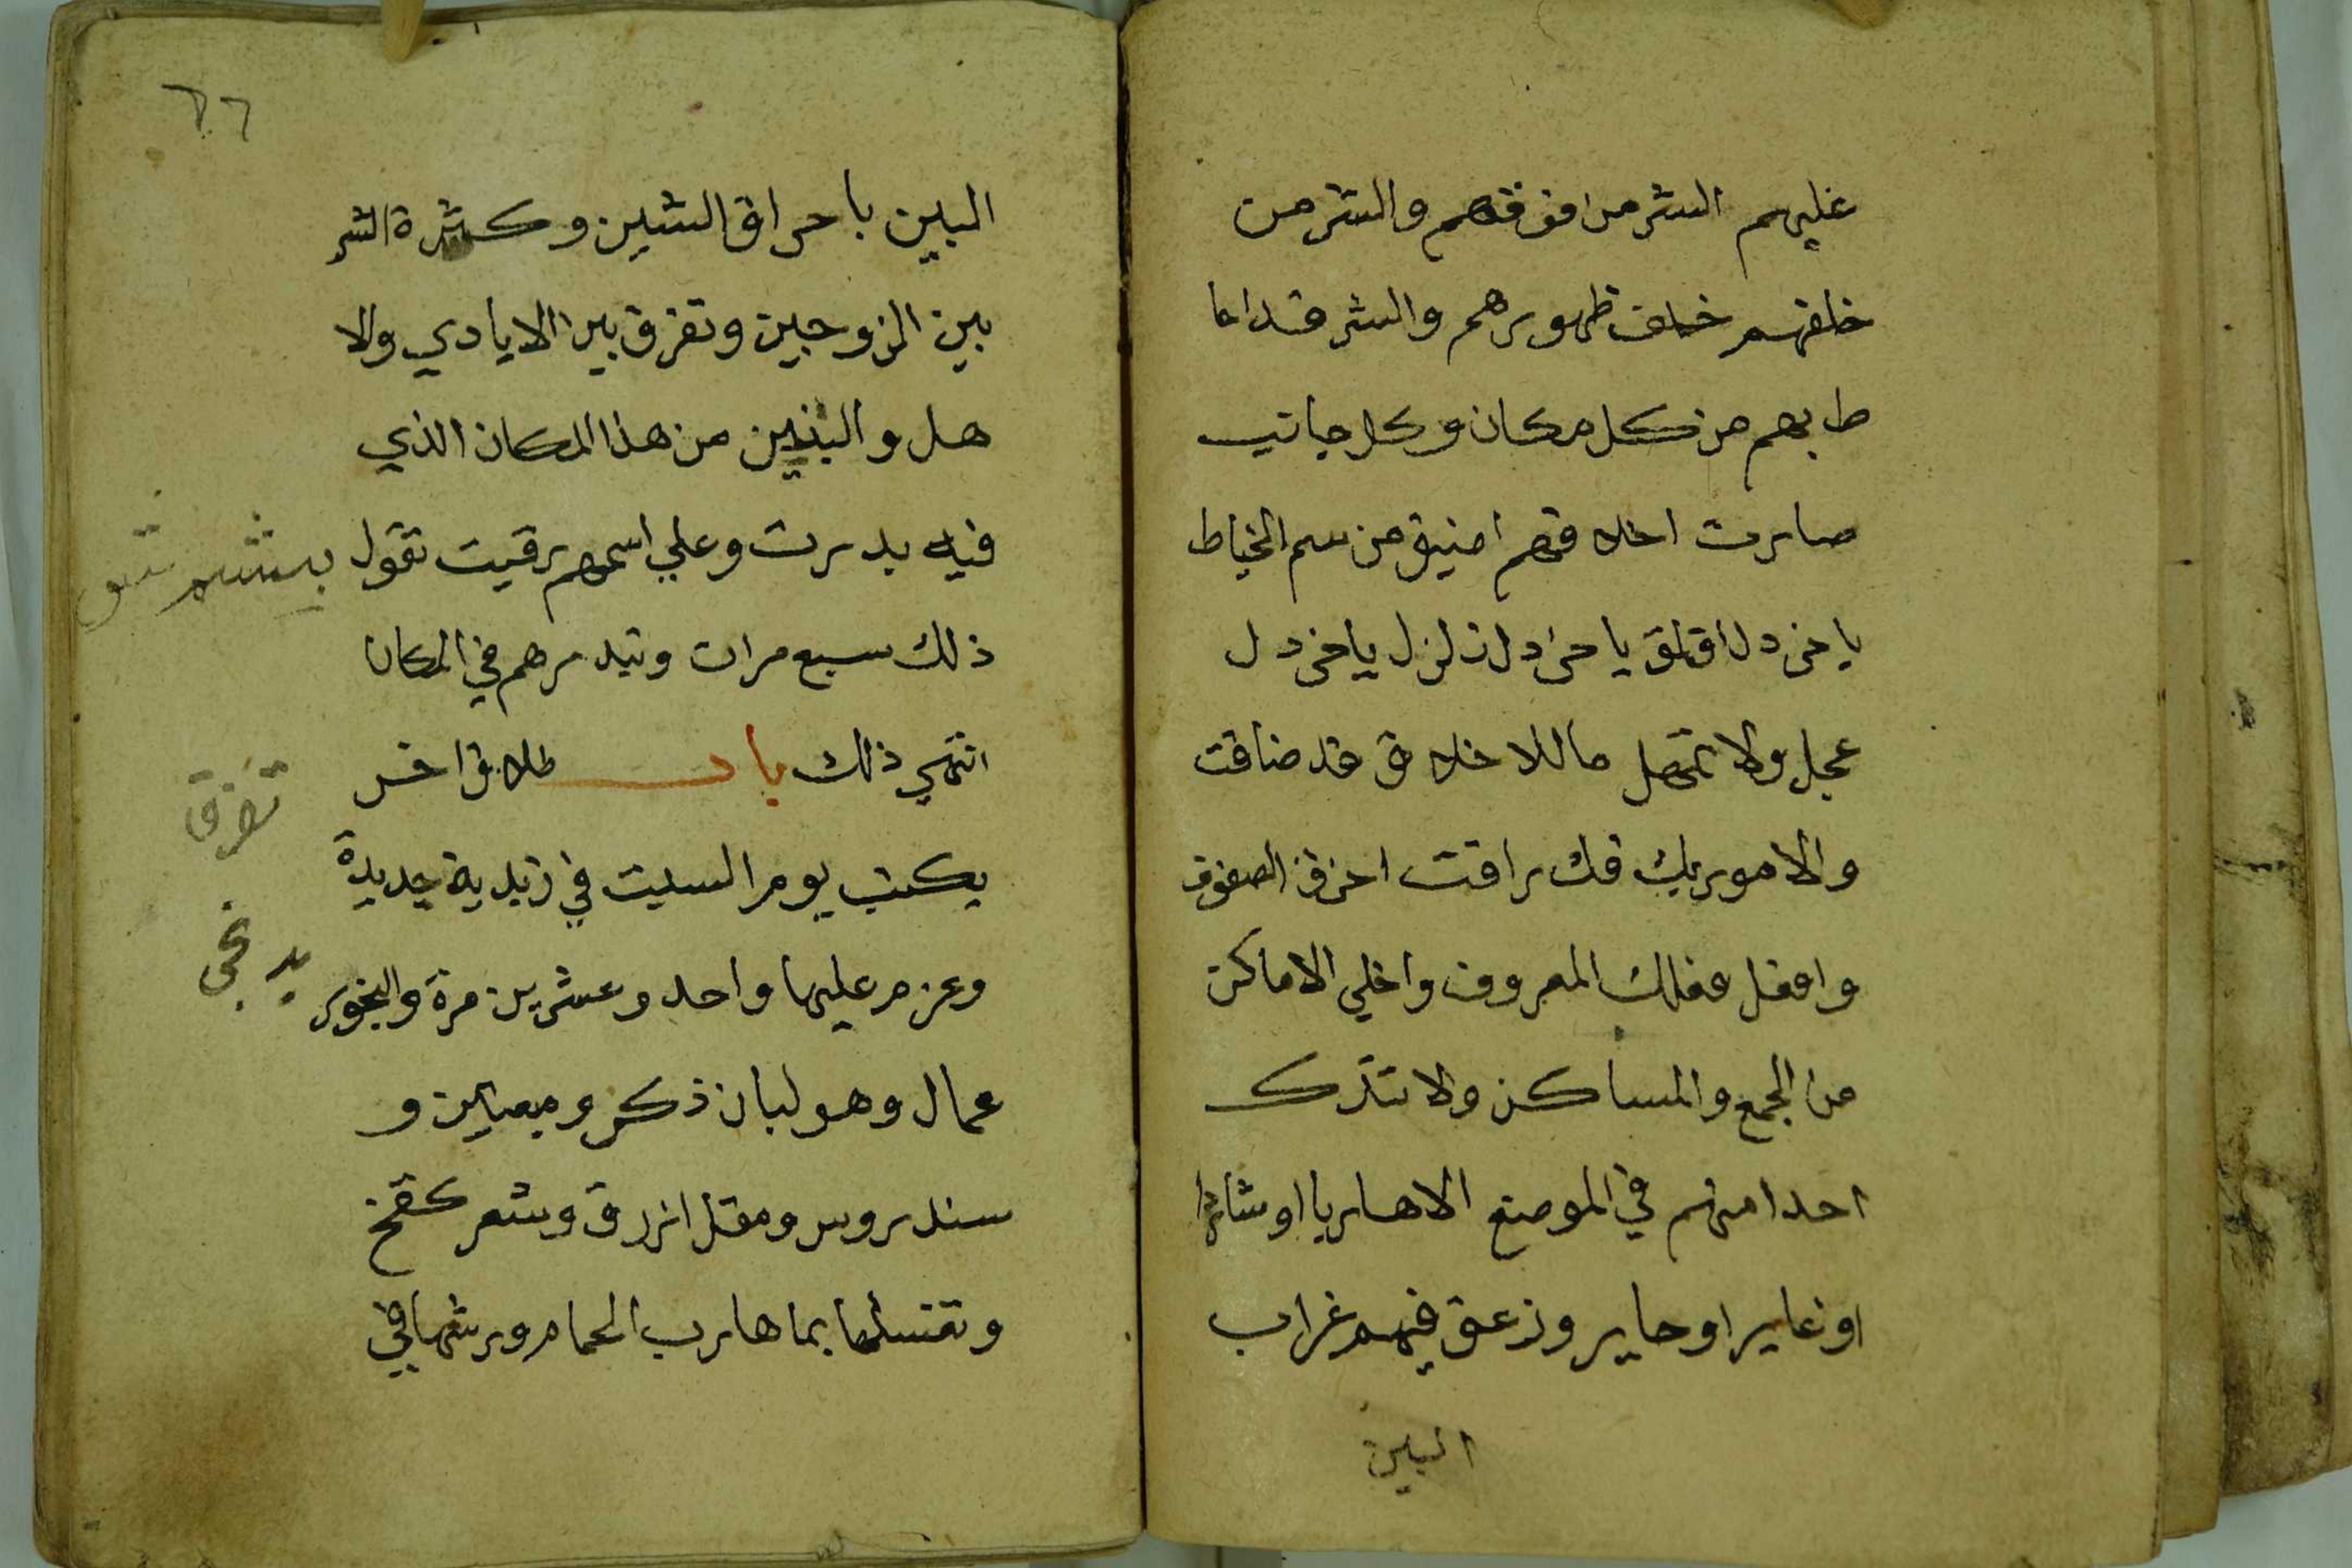 عليهم الشر من افوقهم والشر من
خلفهم خلف ظهورهم والشر قداما
ط بهم من كل مكان وكل جانب
صارت اخلاقهم اضيق من سم الخياط
يا خردل اقلق يا خردل زلزل يا خردل
عجل ولا تمهل ما للاخلاق قد ضاقت
والامور بك فك راقت اخرق الصفوف
وافعل فعلك المعروف واخلي الاماكن
من الجمع والمساكن ولا تترك
احدا منهم في الموضع الا هاربا او شاردا
او غاير او حاير وزعق فيهم غراب
البين
٦٦
البين باحراق الشين وكثرة الشر
بين الزوجين وتفرق بين الايادي والا
هل والبنين من هذا المكان الذي
فيه بدرت وعلي اسمهم رقيت تقول
ذلك سبع مرات وتبدرهم في المكان
انتهي ذلك باب طلاق اخر
يكتب يوم السبت في زبدية جديدة
وعزم عليها واحد وعشرين مرة والبخور
عمال وهو لبان ذكر وميعه و
سندروس ومقل ازرق وشعر
وتغسلها بما هارب الحمام ورشها في
تفرق